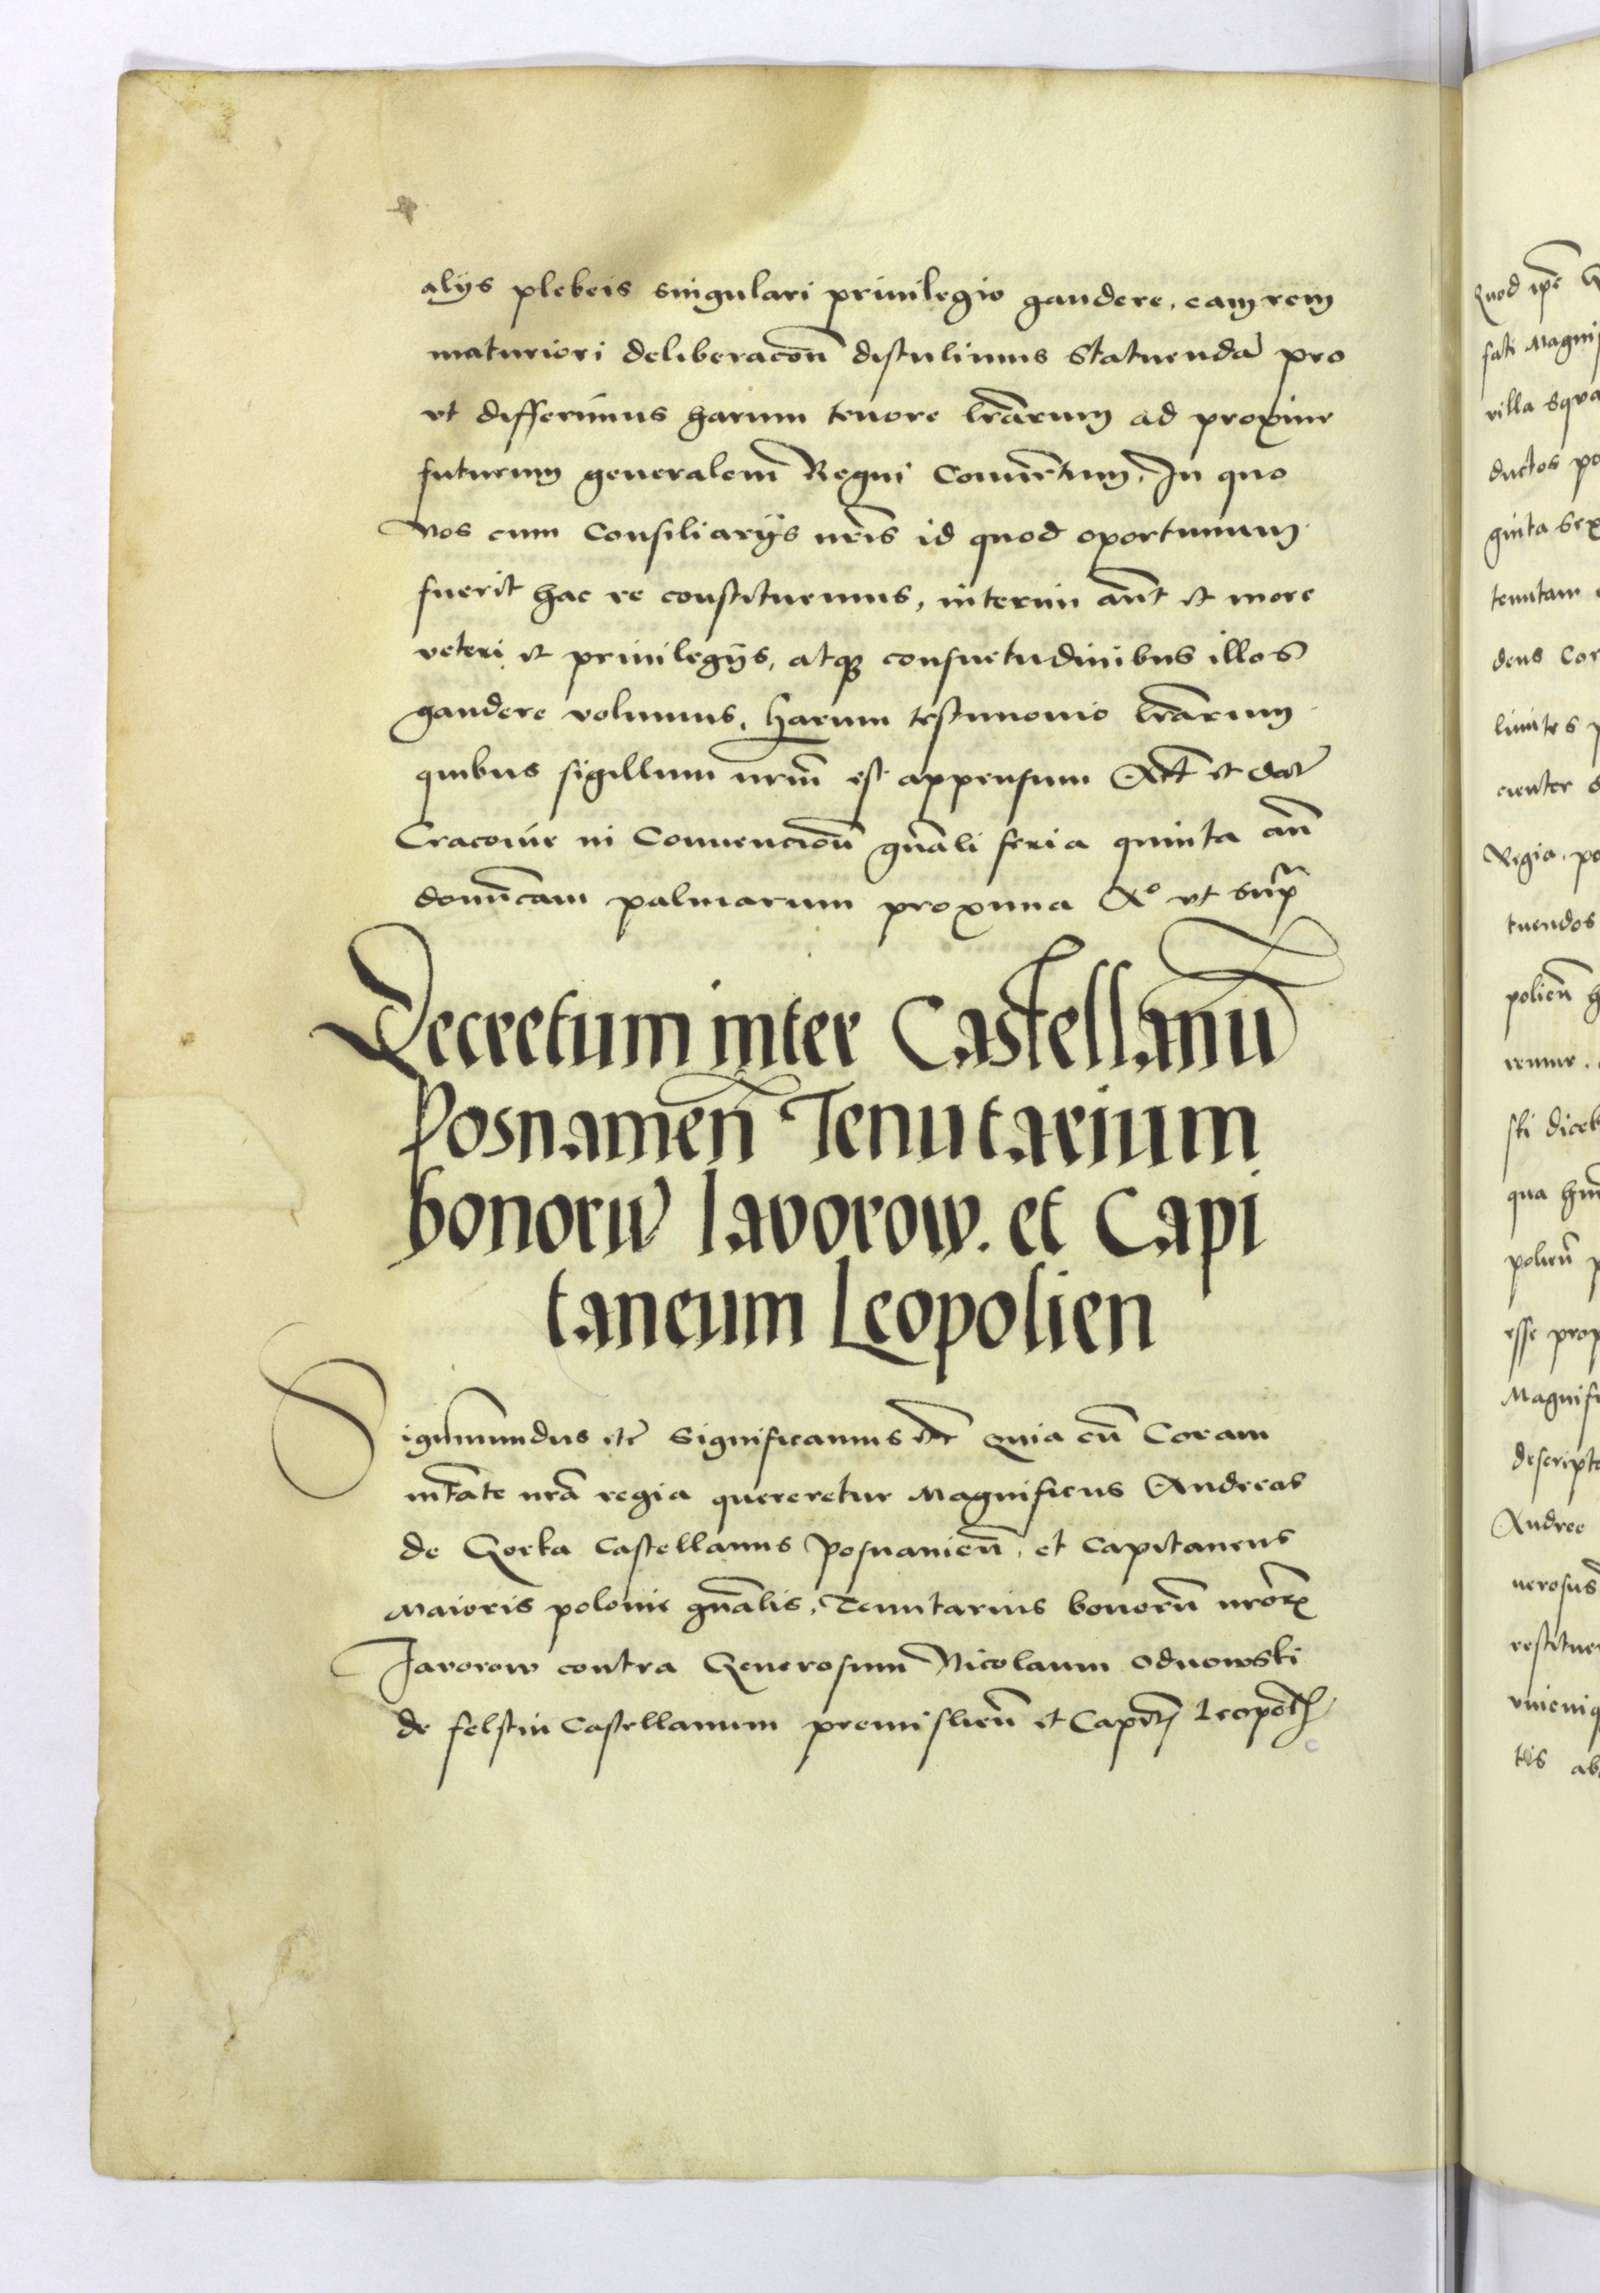 alijs plebeis singulari priuilegio gaudere, eam rem
maturiori deliberacoñ distulimus Statuendã pro
vt differimus harum tenore lr̃arum ad proxime
futurum generalem Regni Conuẽtum, In quo
nos cum Consiliarijs nr̃is id quod oportunum
fuerit hac re constituemus, interim aũt et more
veteri et priuilegijs, atqꝫ consuetudinibus illos
gaudere volumus, harum testimonio lr̃arum
quibus sigillum nrm̃ est appensum Act̃ et dat̃
Cracouie in Conuencioñ gñali feria quinta añ
domĩcam palmarum proxima Aº vt sup̃
Decretum inter Castellanũ
Posnanieñ Tenutarium
bonorũ Iavorow. et Capi
taneum Leopolien
Sigiſmundus etc̃ Significamus etc̃ Quia cũ Coram
mt̃ate nr̃a regia quereretur Magnificus Andreas
de Gorka Castellanus Posnanieñ, et Capitaneus
Maioris polonie gñalis, Tenutarius bonorũ nr̃orꝝ
Iavorow contra Generosum Nicolaum Odnowski
de felstin Castellanum premislieñ et Capit̃ Leopol̃
Quod ip̃e
fati Magnif
villa
ductos po
ginta sex
tenutam
dens Cor
limites p
Regia, po
tuendos
polieñ h
sti diceb
qua
polieñ p
esse prop
Magnifi
descripto
Andree
nerosus
restituer
vnicuiq